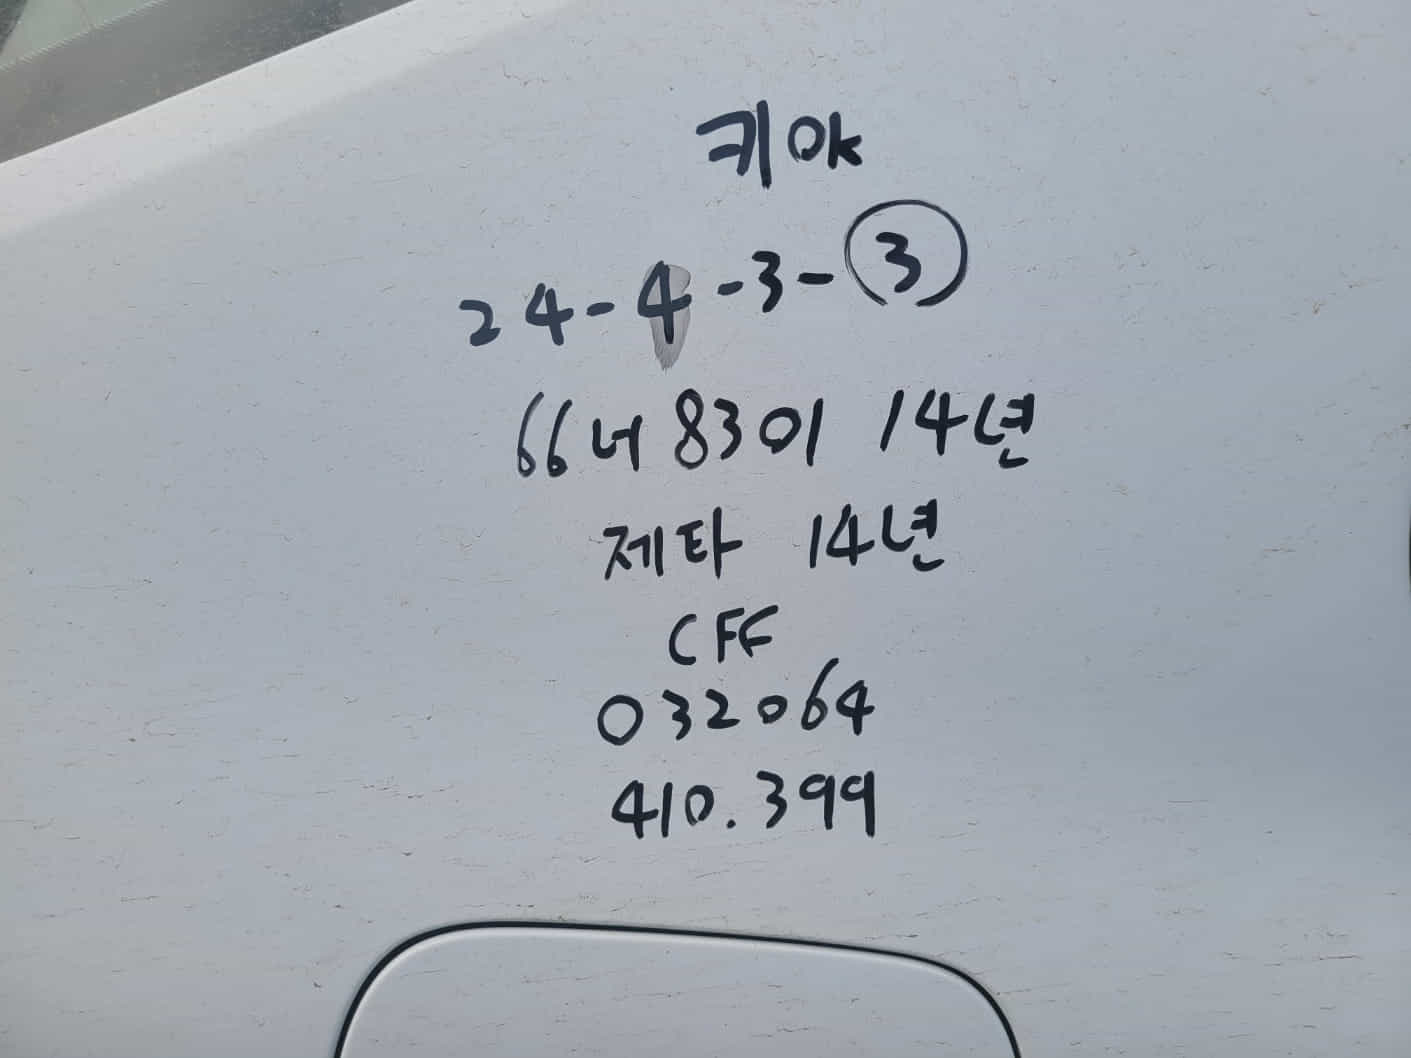 키 OK
24-4-3-③
66너 8301 14년
제타 14년
CFF
032064
410.399